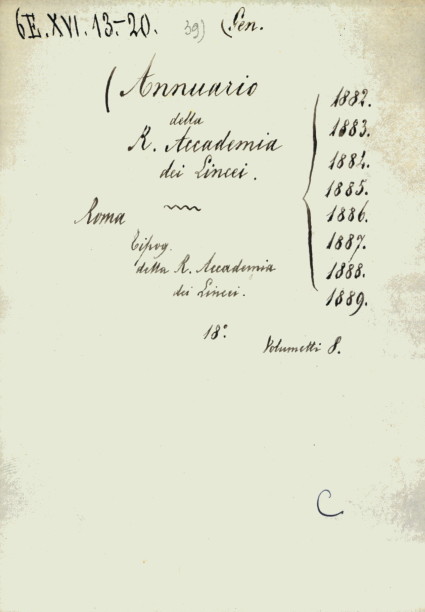 6E.XVI.13.-20. 39) (Gen.
(Annuario
della
R. Accademia
dei Lincei.
Roma
Tipog.
della R. Accademia
dei Lincei.
1882.
1883.
1884.
1885.
1886.
1887.
1888.
1889.
18°
Volumetti 8.
C